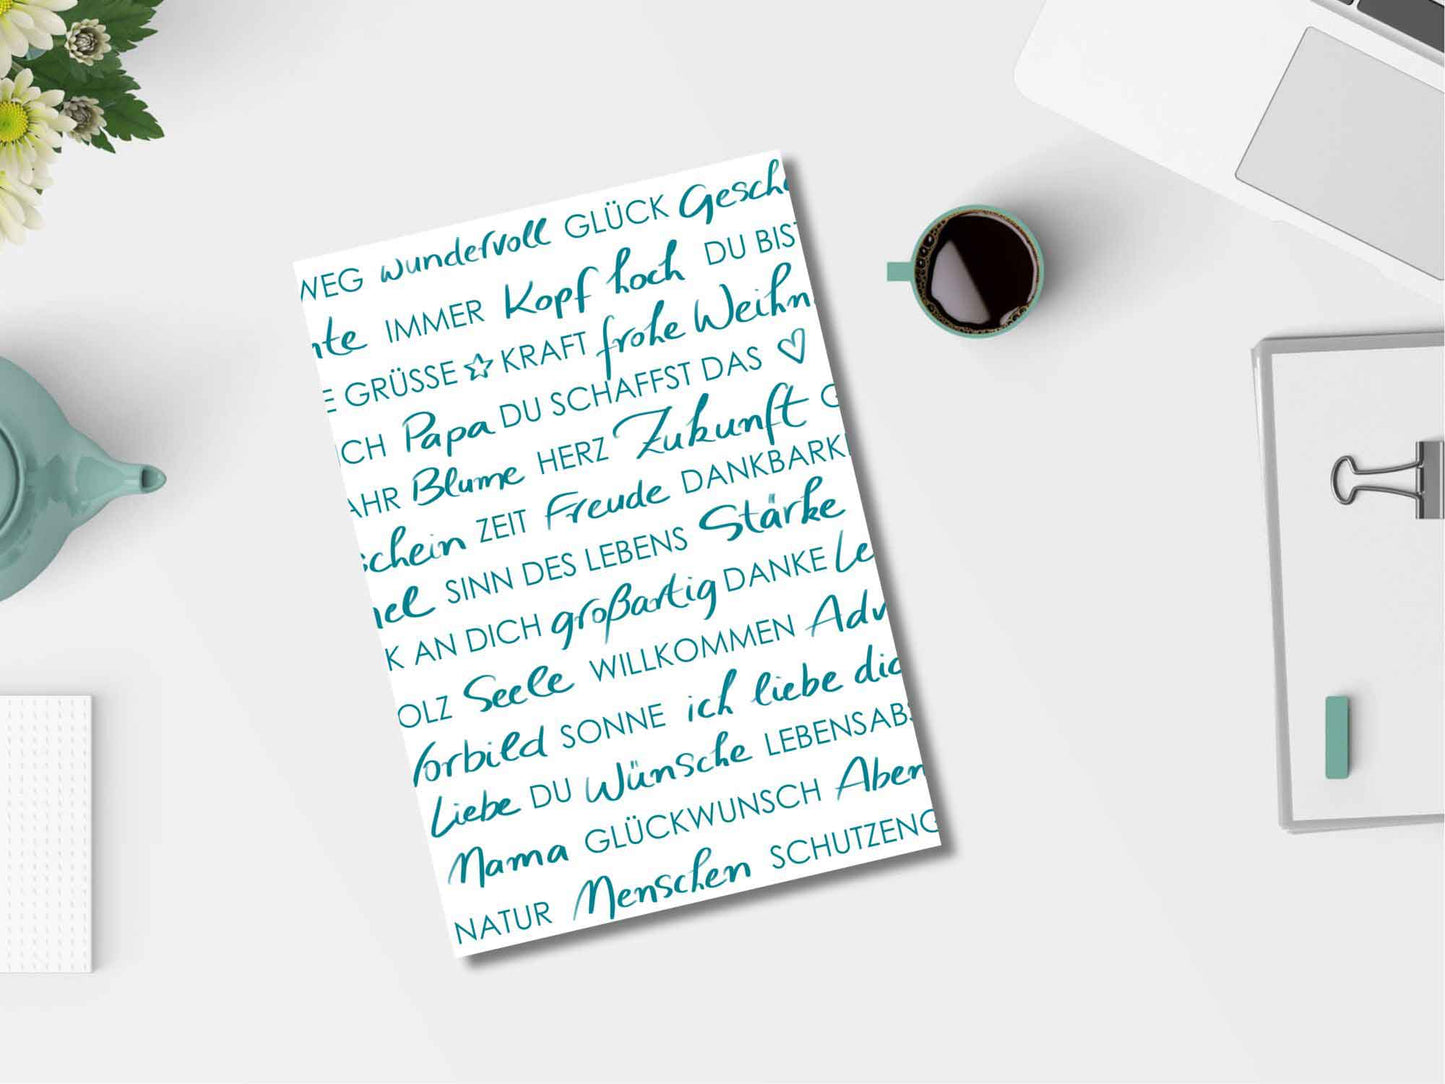 WEG wundervoll GLÜCK Gesch
nte IMMER Kopf hoch DU BIST
E GRÜSSE KRAFT frohe Weihn
ICH Papa DU SCHAFFST DAS
AHR Blume HERZ Zukunft G
schein ZEIT Freude DANKBARK
mel SINN DES LEBENS Stärke
K AN DICH großartig DANKE Le
OLZ Seele WILLKOMMEN Adv
Vorbild SONNE ich liebe dic
Liebe DU Wünsche LEBENSABS
Mama GLÜCKWUNSCH Aben
NATUR Menschen SCHUTZENG